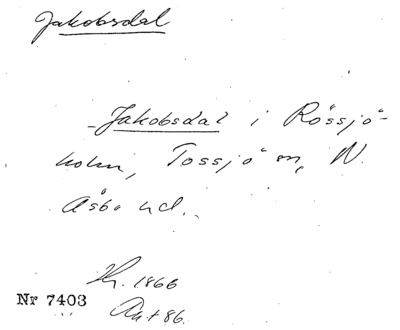 Jakobsdal
– Jakobsdal i Rössjö-
holm, Tossjö sn, N.
Åsbo hd.
1866
Nr 7403